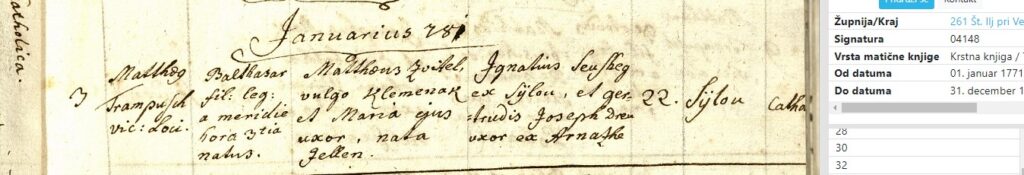 Catholica.
Januarius 781
3
Matthæg
Trampusch
vic: Loci.
Balthasar
fil: leg:
a meridie
hora 3tia
natus.
Mattheus Zvikel,
vulgo Klemenak
et Maria ejus
uxor, nata
Jellen.
Ignatius
ex Sÿlou, et ger-
=trudis Joseph Dreu
uxor ex Arnazhe
22.
Sÿlou
Catho
Pridruži se
Kontakt
Župnija/Kraj 261 Št. Ilj pri Ve
Signatura 04148
Vrsta matične knjige Krstna knjiga /
Od datuma 01. januar 1771
Do datuma 31. december 1
28
30
32